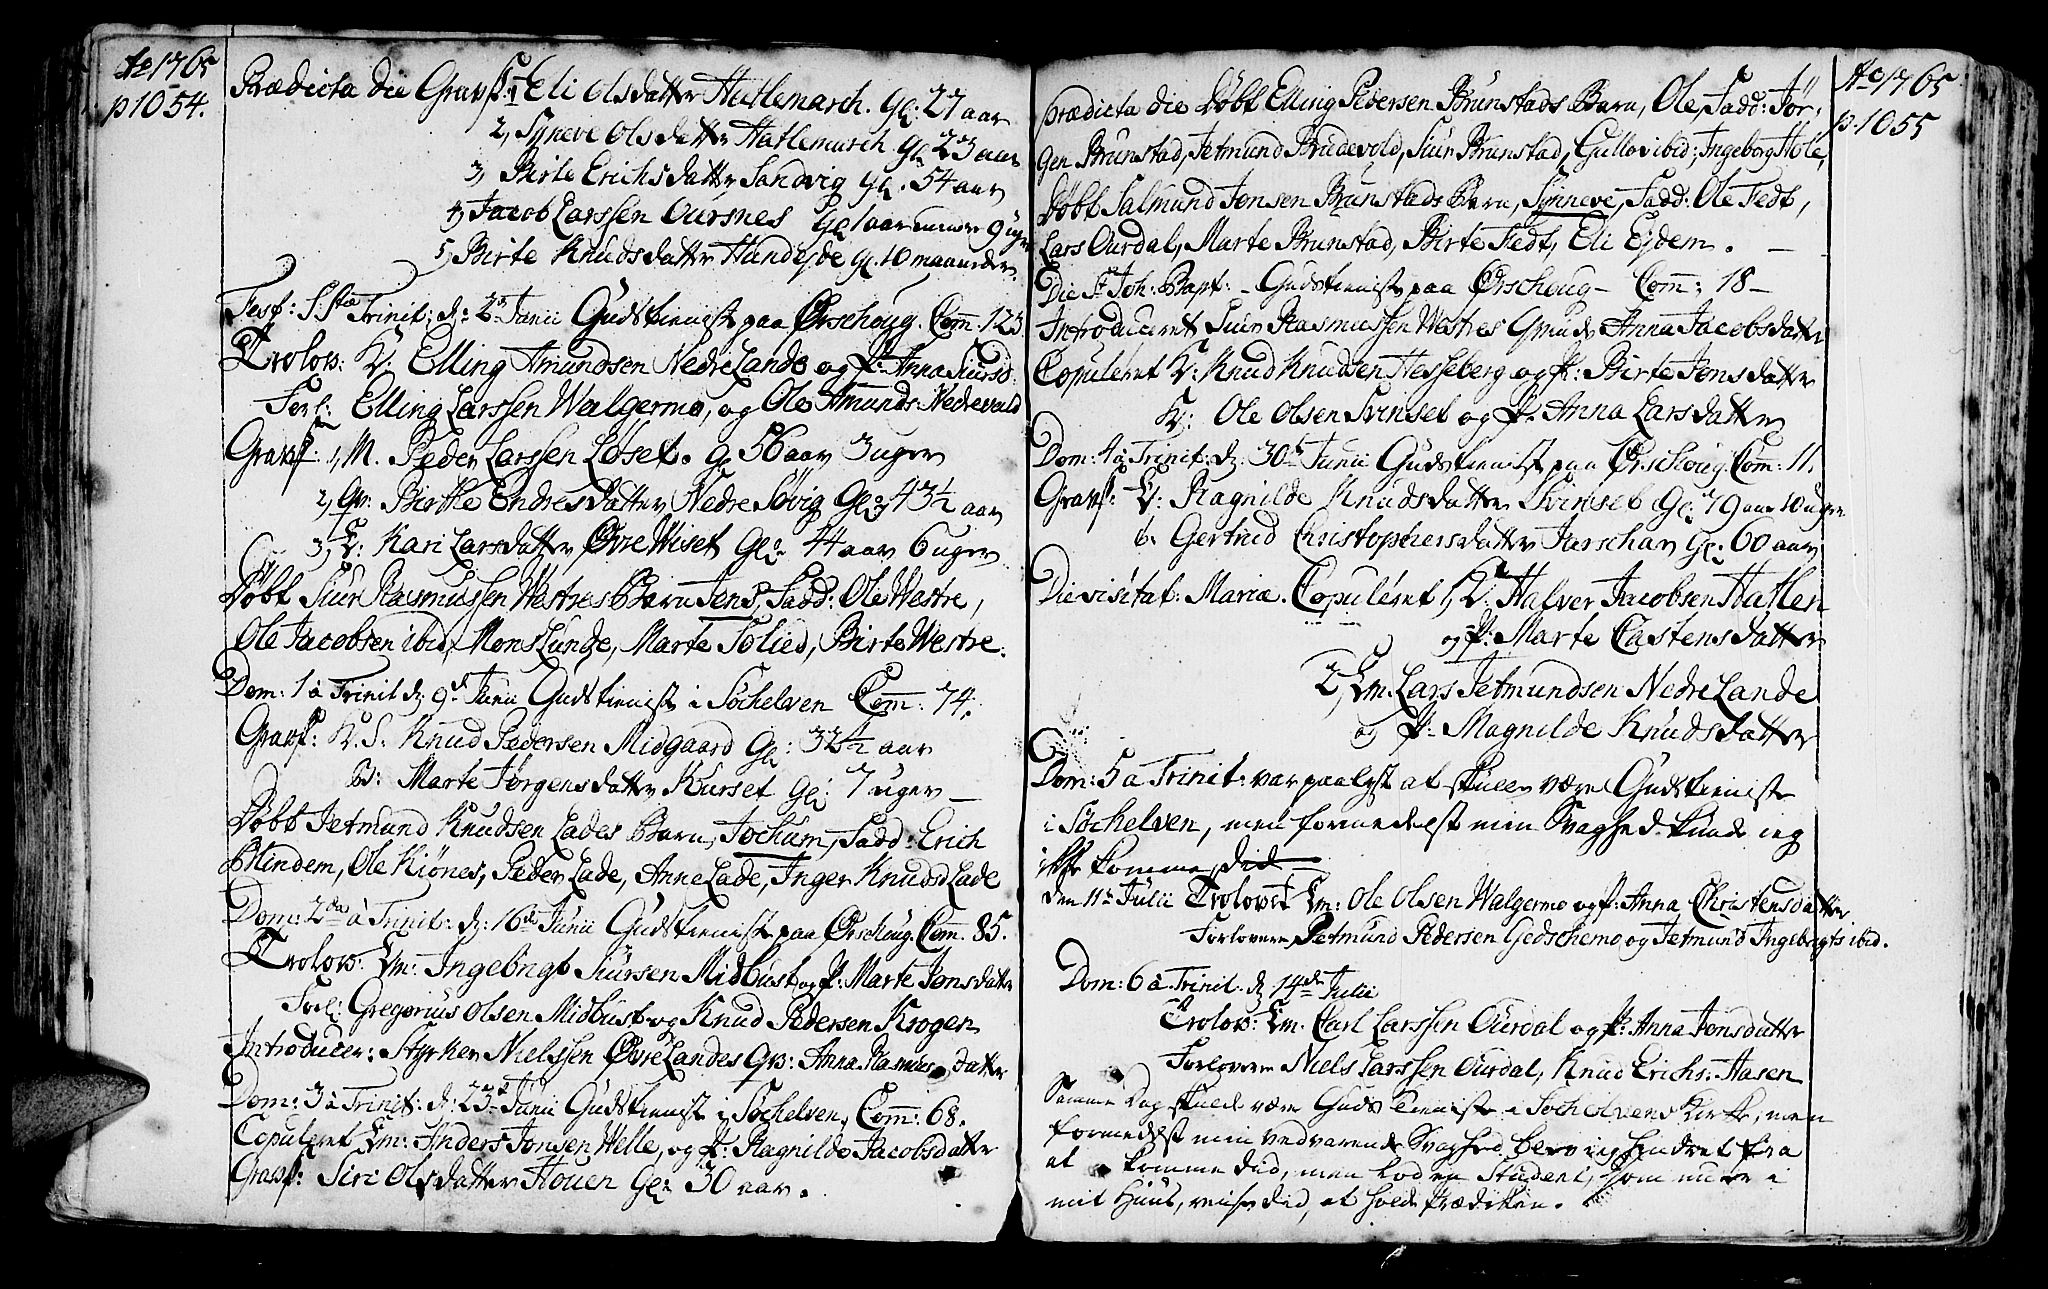 Ao 1765
p 1054.
Prædicta die Gravf: 1, Eli Olsdatter Hatlemarch. Gl: 27 aar
2, Syneve Olsdatter Hatlemarch Gl 23 aar
3, Birte Erichsdatter Sandvig Gl. 54 aar
4, Jacob Larssen Oursnes Gl 1 aar minder 9 uger
5, Birte Knudsdatter Handejde Gl. 10 maaneder.
Fest: S. Stæ Trinit: d: 2d Junii Gudstienist paa Ørschoug. Com: 123.
Trolov: K: Elling Amundsen Nedre Lande og P: Anna Siursd:
Forl: Elling Larssen Walgermo, og Ole Amunds: Nedrevald
Gravf: 1, M. Peder Larssen Løset. g 56 aar 3 uger
2, Qv: Birthe Endresdatter Nedre Søvig Gl: 43½ aar
3, P: Kari Larsdatter Øvre Wiset Gl: 4 aar 6 uger
Døbt Siur Rasmussen Westres Barn Jens, Fadd: Ole Westre,
Ole Jacobsen ibid, Mons Lunde, Marte Solied, Birte Westre.
Dom: 1 à Trinit d: 9d Junii Gudstienist i Søchelven Com: 74.
Gravf: K. S. Knud Pedersen Midgaard Gl: 32½ aar
B: Marte Jørgensdatter Kurset Gl: 7 uger
Døbt Jetmund Knudsen Lades Barn, Jochum, Fadd: Erich
Blindem, Ole Kiønes, Peder Lade, Anne Lade, Inger Knudsd Lade
Dom: 2da à Trinit: d: 16d Junii Gudstienist paa Ørschoug. Com. 85.
Trolov: Em: Ingebrigt Siursen Midbust og P: Marte Jonsdatter
Forl: Gregorius Olsen Midbust og Knud Pedersen Krogen
Introducer: Styrker Nielssen Øvre Landes Qv: Anna Rasmusdatter
Dom: 3 à Trinit: d: 23d Junii Gudstienist i Søchelven, Com: 68.
Copuleret Em: Anders Jonsen Welle, og P: Ragnilde Jacobsdatter
Gravf: Siri Olsdatter Houen Gl: 30 aar.
Ao 1765
p. 1055
Prædicta die Døbt Elling Pedersen Brunstads Barn, Ole, Fadd: Jør-
gen Brunstad, Jetmund Brudevold, Siur Brunstad, Gullov ibid; Ingeborg Hole,
Døbt Salmund Jonsen Brunstads Barn, Synneve, Fadd: Ole Fedt,
Lars Ourdal, Marte Brunstad, Birte Fedt, Eli Ejdem.
Die St Joh: Bapt: - Gudstienist paa Ørschoug - Com: 18 -
Introduceret Siur Rasmussen Westres Qvinde Anna Jacobsdatter
Copuleret K: Knud Knudsen Hesseberg og P: Birte Jonsdatter
K: Ole Olsen Svinset og P. Anna Larsdatter
Dom: 4 à Trinit: d: 30d Junii Gudstienist paa Ørschoug. Com: 11.
Gravf: E: Ragnilde Knudsdatter Svinset Gl: 79 aar 10 uger
b. Gertrud Christophersdatter Jarschar Gl: 60 aar
Die visitat: Mariæ. Copuleret 1, K: Halver Jacobsen Hatlen
og P: Marte Castensdatter
2, Em. Lars Jetmundsen Nedre Lande
og P: Magnilde Knudsdatter
Dom: 5 à Trinit: var paalyst at skulle være Gudstieniste
i Søchelven, men formedelst min Svaghed kunde ieg
ikke komme did
den 11te Julii Trolovet Em: Ole Olsen Walgermo og P: Anna Christensdatter
Forlovere Jetmund Pedersen Gedschemo og Jetmund Ingebrigts ibid.
Dom: 6 à Trinit. d: 14de Julii
Trolov: Em. Carl Larssen Ourdal og P: Anna Jonsdatter
Forlovere Niels Larssen Ourdal, Knud Erichs: Aasen
Samme Dag skulde være Guds tieniste i Søchelvens Kirke, men
formedelst min vedvarende Svaghed blev ieg hindret fra
at komme did, men lod en Student, som nu er i
mit Huus, reise did, at holde Prædiken.